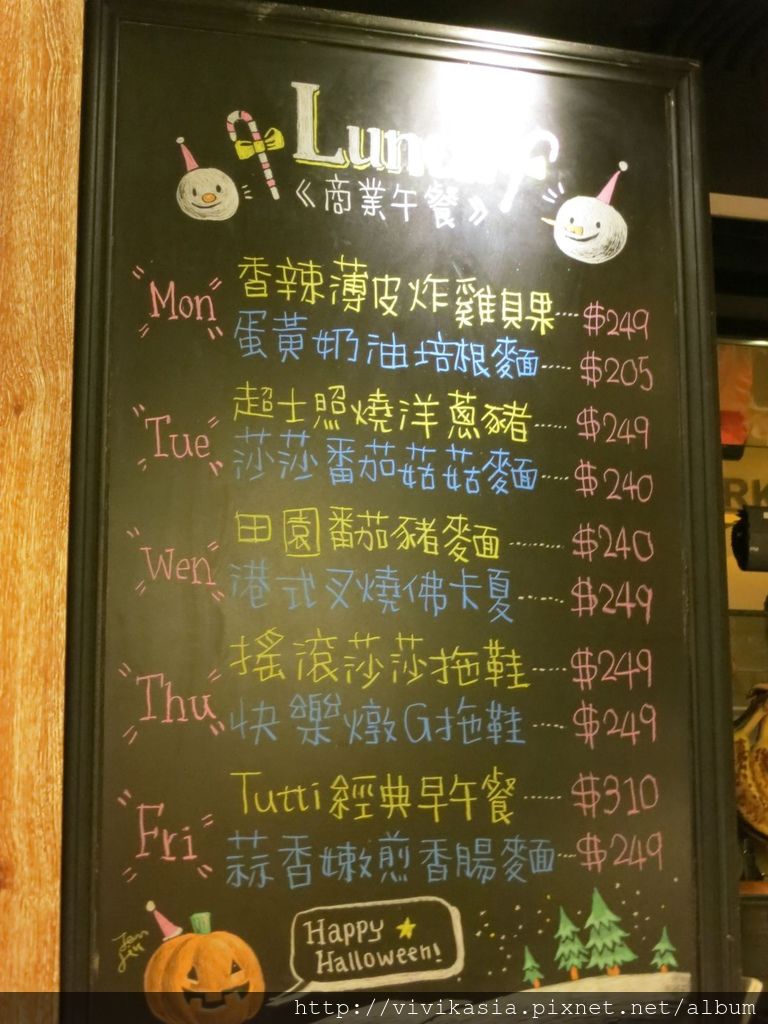 Lunch
《商業午餐》
Mon
香辣薄皮炸雞貝果 $249
蛋黃奶油培根麵 $205
Tue
超士照燒洋蔥豬 $249
莎莎番茄菇菇麵 $240
Wen
田園番茄豬麵 $240
港式叉燒佛卡夏 $249
Thu
搖滾莎莎拖鞋 $249
快樂燉G拖鞋 $249
Fri
Tutti經典早午餐 $310
蒜香嫩煎香腸麵 $249
Happy
Halloween!
http://vivikasia.pixnet.net/album